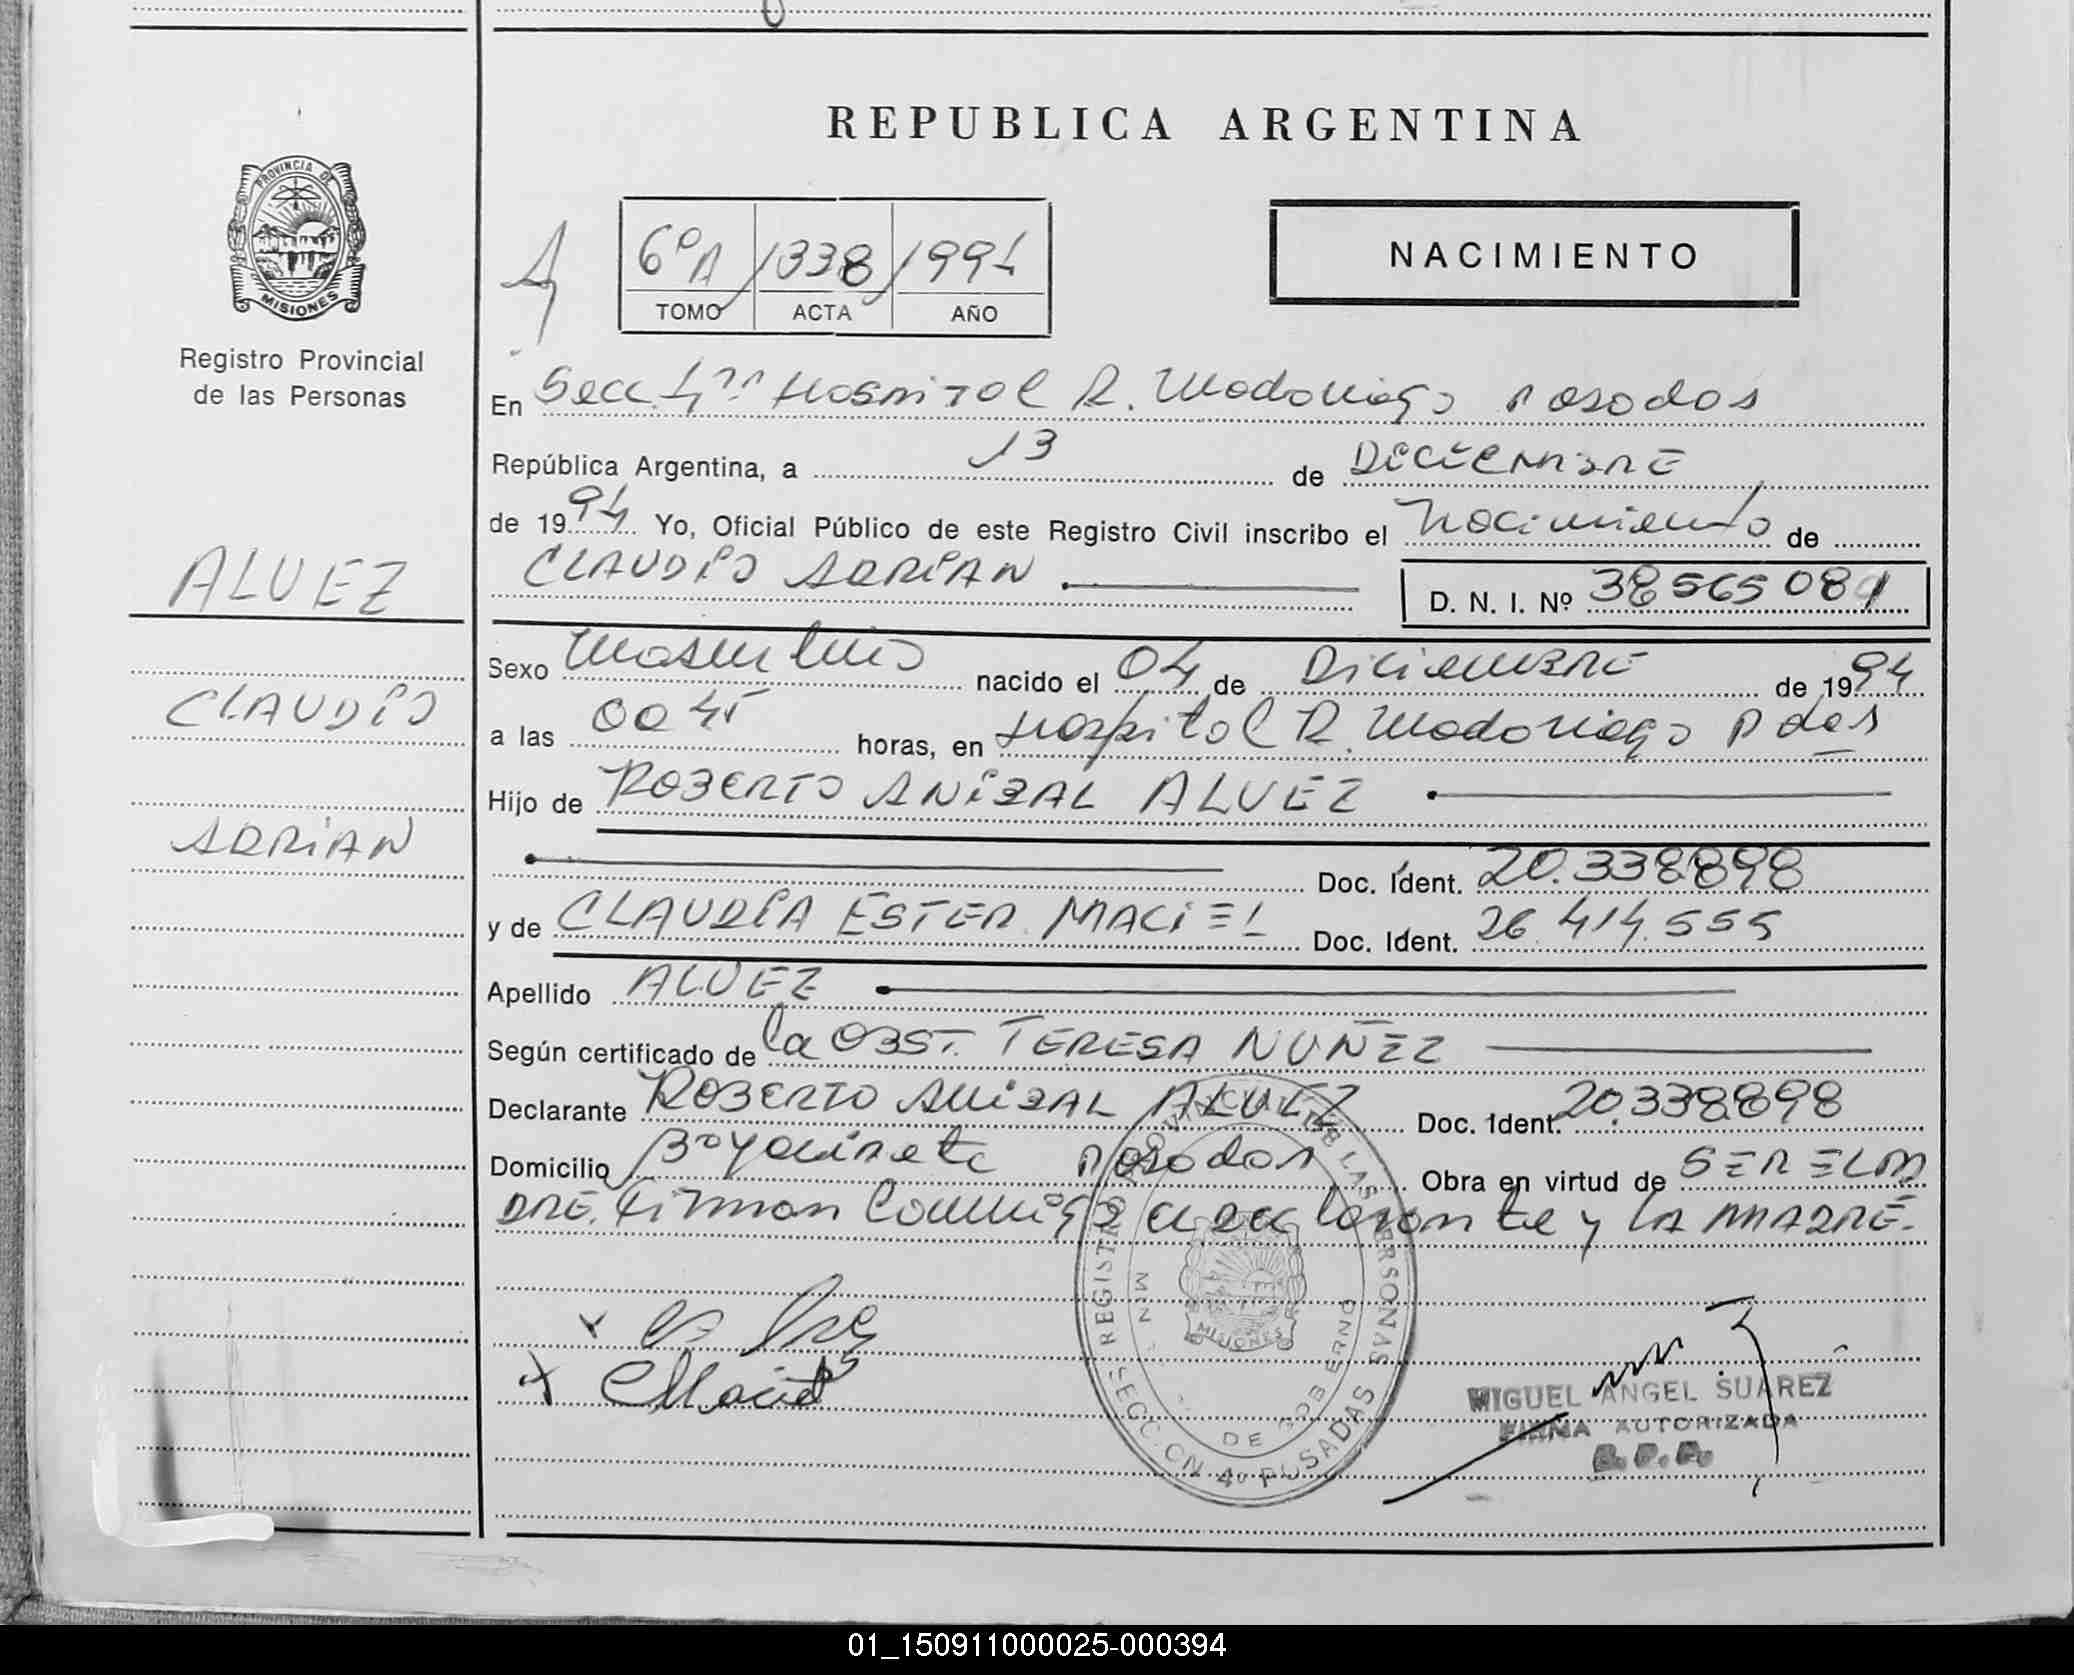 REPUBLICA ARGENTINA
PROVINCIA DE
MISIONES
Registro Provincial
de las Personas
6º A 1338 1994
TOMO ACTA AÑO
NACIMIENTO
En Secc. 4ta Hospital R. Madariaga Posadas
República Argentina, a 13 de DICIEMBRE
de 1994 Yo, Oficial Público de este Registro Civil inscribo el Nacimiento de
ALVEZ
CLAUDIO ADRIAN D. N. I. Nº 38565081
Sexo Masculino nacido el 04 de DICIEMBRE de 1994
CLAUDIO
a las 0045 horas, en Hospital R. Madariaga Pdas
Hijo de ROBERTO ANIBAL ALVEZ
ADRIAN
Doc. Ident. 20.338898
y de CLAUDIA ESTER MACIEL Doc. Ident. 26.414.555
Apellido ALVEZ
Según certificado de la OBST. TERESA NUÑEZ
Declarante ROBERTO ANIBAL ALVEZ Doc. Ident. 20.338898
Domicilio Bº Yacireta Posadas Obra en virtud de SER EL PA
DRE. Firman Conmigo el declarante y LA MADRE.
REGISTRO PROVINCIAL DE LAS PERSONAS
MIN. DE GOBIERNO
MISIONES
SECCION 4º POSADAS
CMaciel
MIGUEL ANGEL SUAREZ
FIRMA AUTORIZADA
R.P.P.
01_150911000025-000394